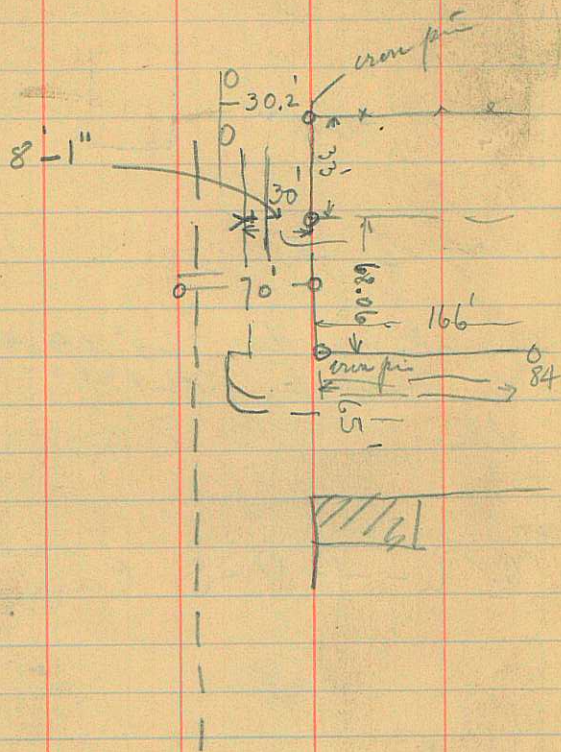 iron pin
30.2'
8'-1"
33'
30'
70'
68.06
166'
iron pin
84
65'